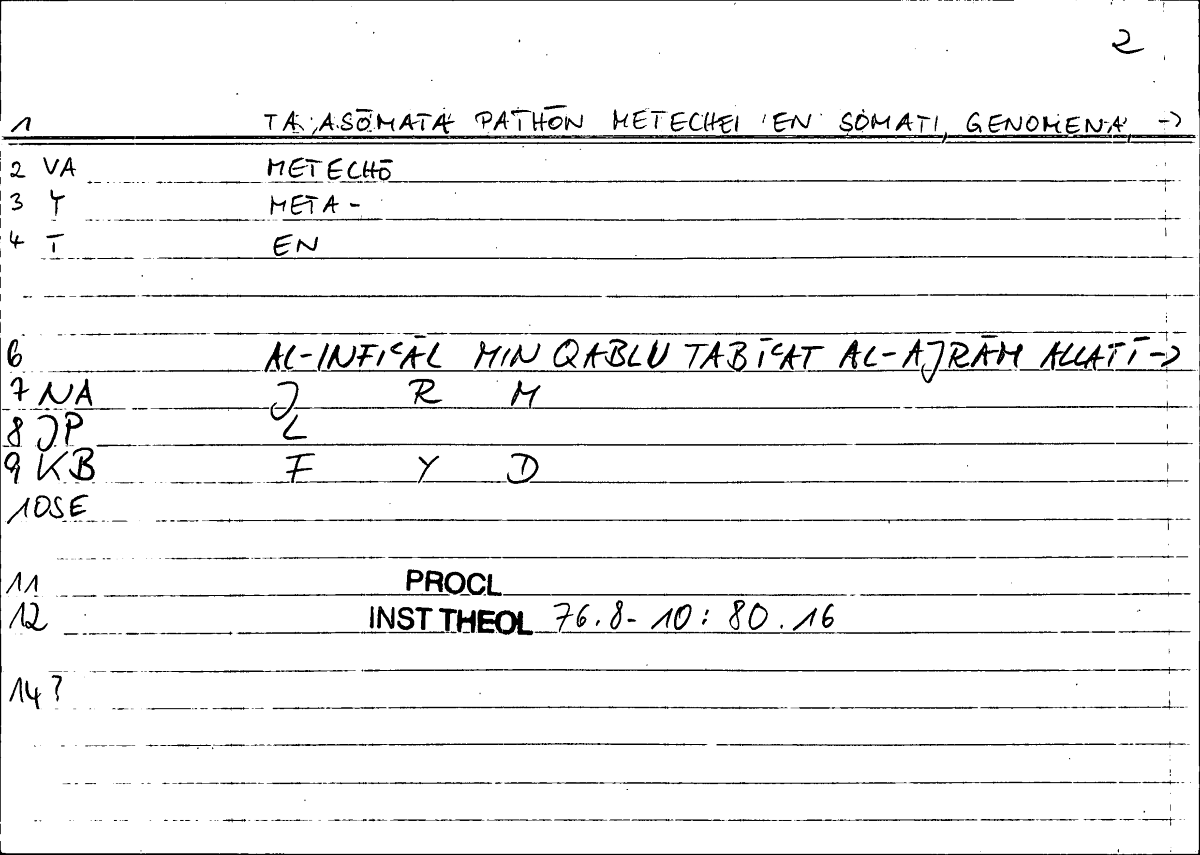 2
1 TA ASŌMATA PATHŌN METECHEI EN SŌMATI, GENOMENA, ->
2 VA METECHŌ
3 Y META-
4 T EN
6 AL-INFIʿĀL MIN QABLU TABĪʿAT AL-AJRĀM ALLATĪ->
7 NA J R M
8 JP L
9 KB F Y D
10SE
11 PROCL
12 INST THEOL 76.8-10: 80.16
14?